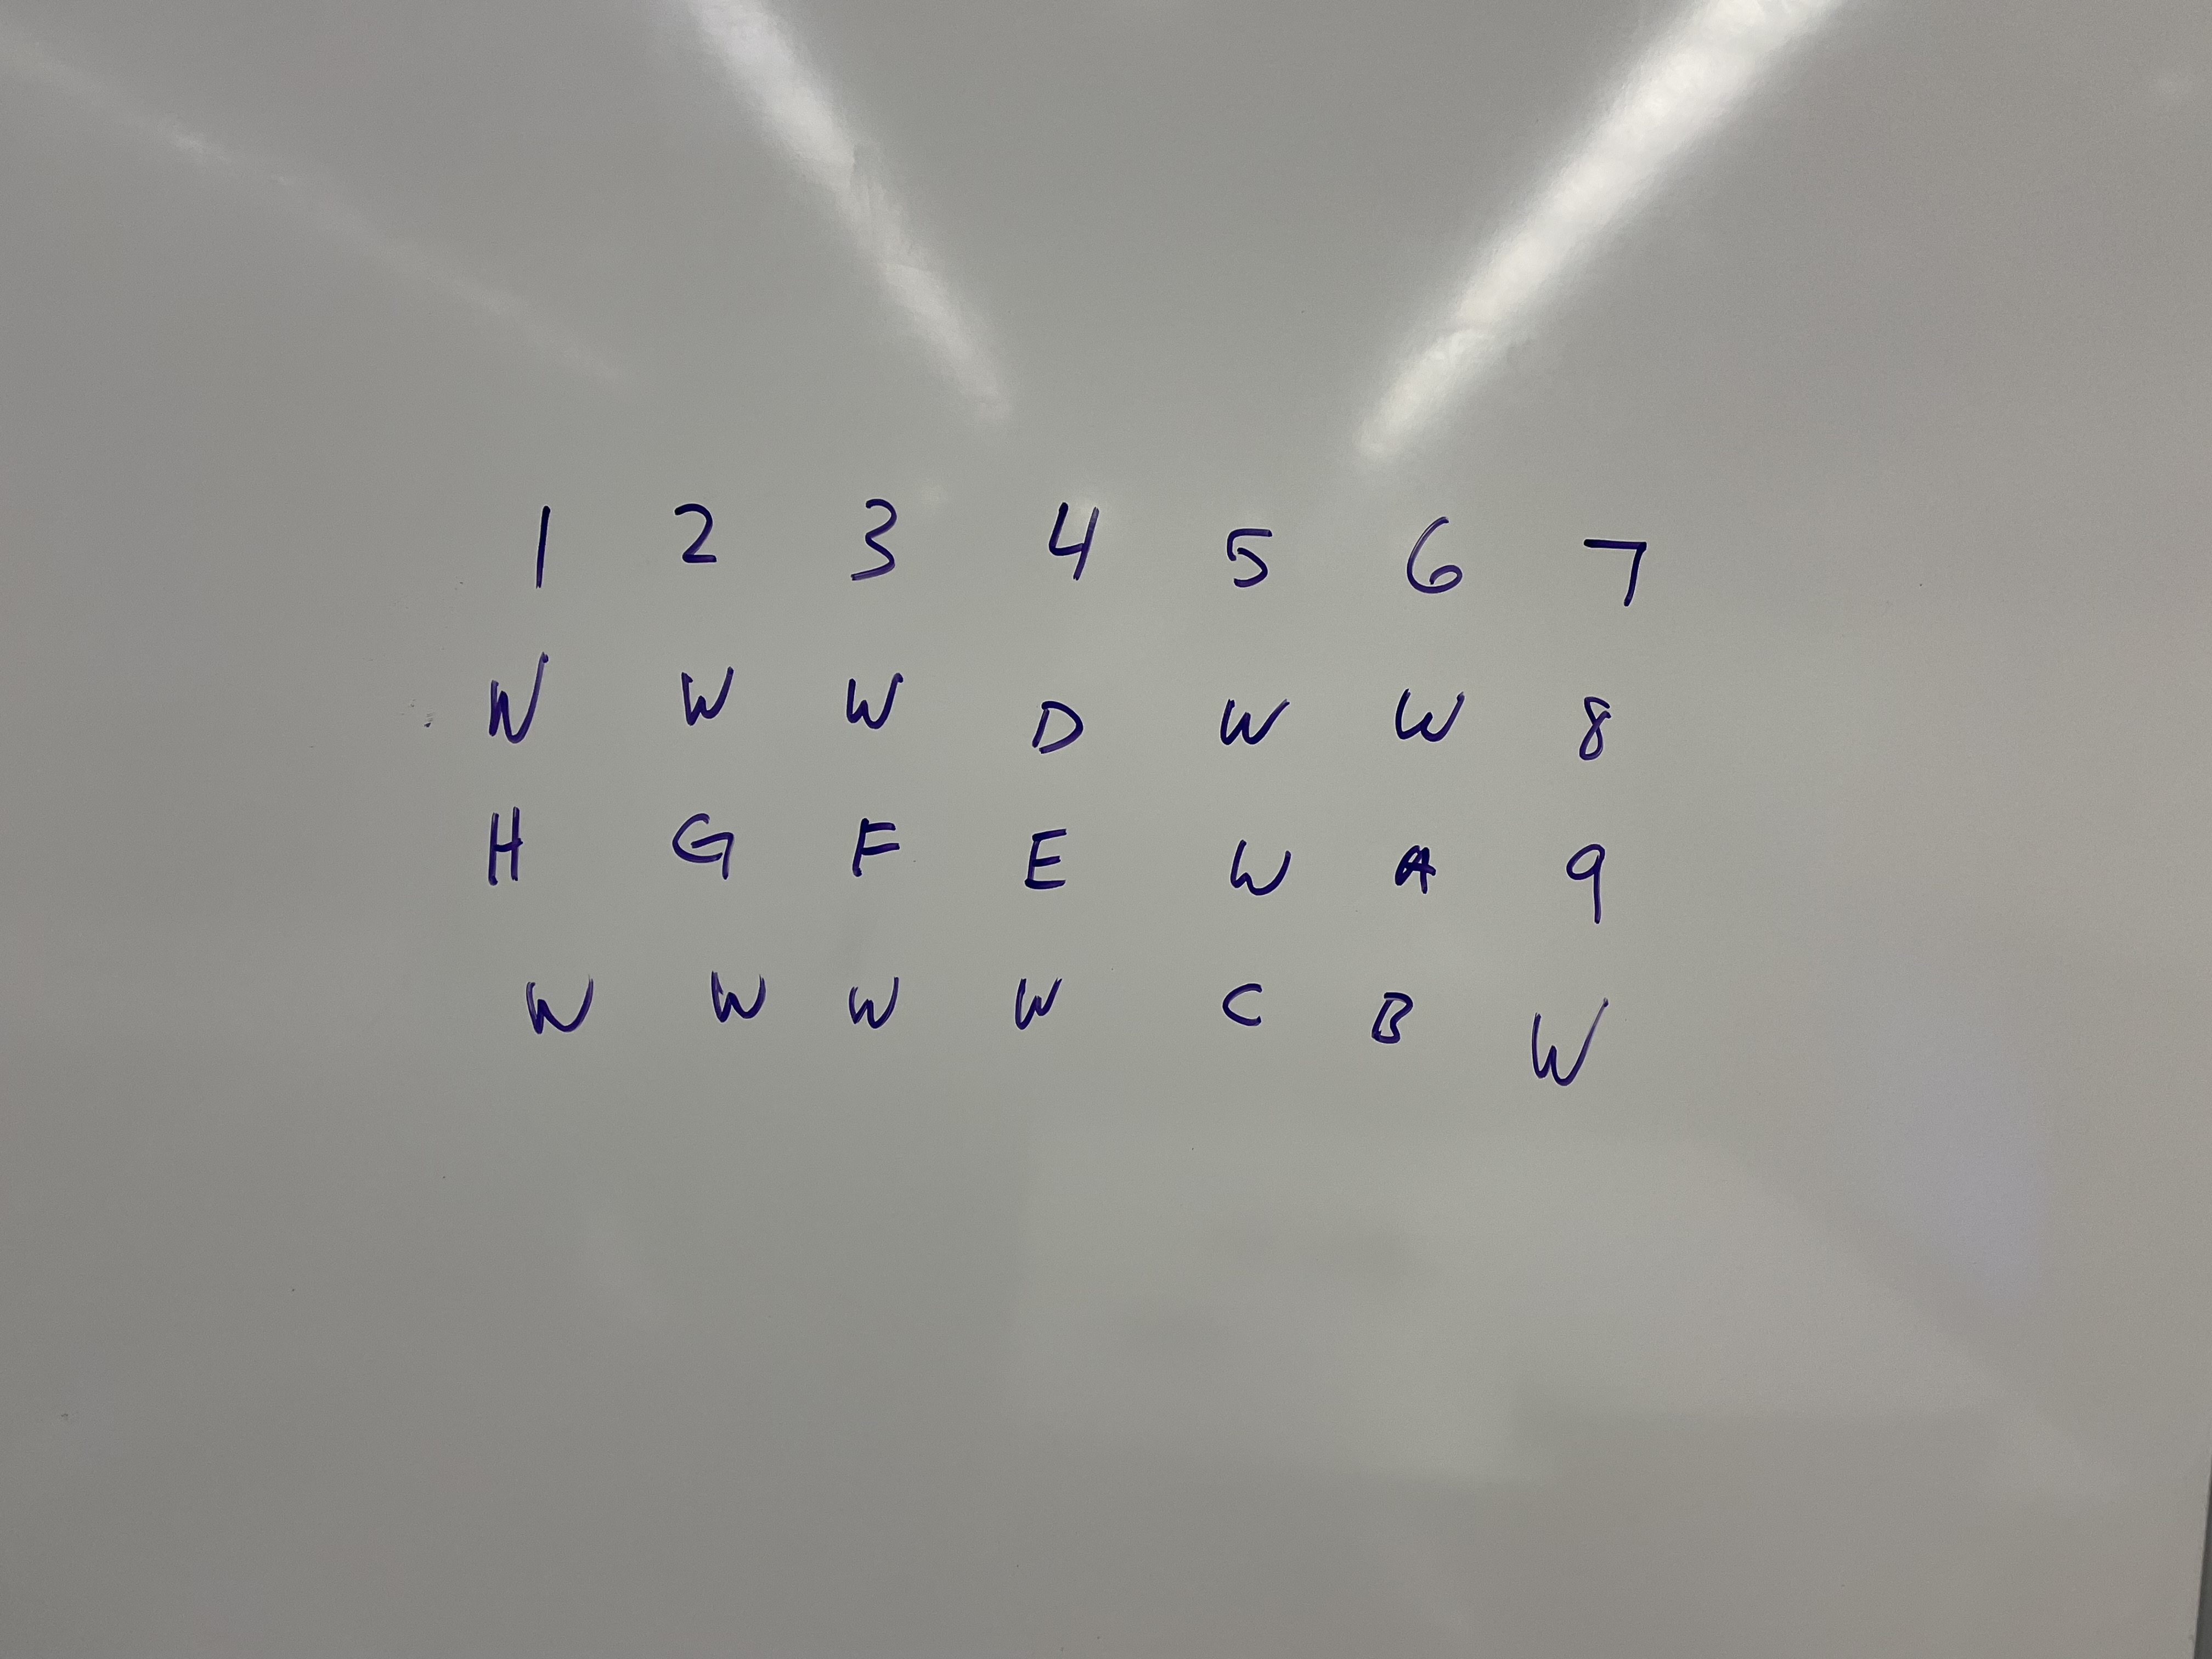 1 2 3 4 5 6 7
W W W D W W 8
H G F E W A 9
W W W W C B W